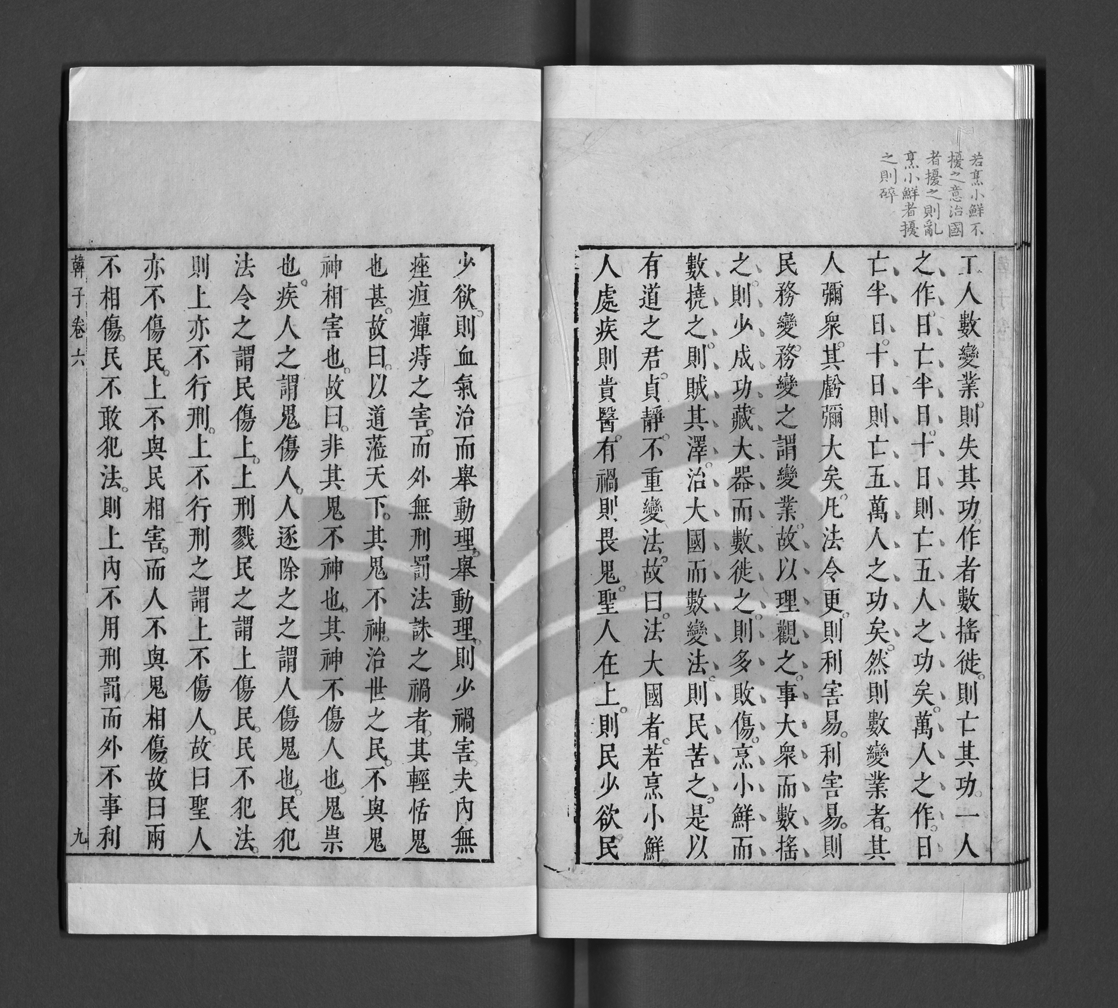 若烹小鮮不
擾之意治國
者擾之則亂
烹小鮮者擾
之則碎
工人數變業。則失其功。作者數搖徙。則亡其功。一人
之作。日亡半日。十日則亡五人之功矣。萬人之作。日
亡半日。十日則亡五萬人之功矣。然則數變業者。其
人彌衆。其虧彌大矣。凡法令更。則利害易。利害易。則
民務變。務變之謂變業。故以理觀之。事大衆而數搖
之。則少成功。藏大器而數徙之。則多敗傷。烹小鮮而
數撓之。則賊其澤。治大國而數變法。則民苦之。是以
有道之君。貞靜。不重變法。故曰。法大國者。若烹小鮮
人處疾則貴醫。有禍則畏鬼。聖人在上。則民少欲。民
少欲。則血氣治而舉動理。舉動理。則少禍害。夫內無
痤疽癉痔之害。而外無刑罰法誅之禍者。其輕恬鬼
也甚。故曰。以道蒞天下。其鬼不神。治世之民。不與鬼
神相害也。故曰。非其鬼不神也。其神不傷人也。鬼祟
也。疾人之謂鬼傷人。人逐除之之謂人傷鬼也。民犯
法令之謂民傷上。上刑戮民之謂上傷民。民不犯法。
則上亦不行刑。上不行刑之謂上不傷人。故曰聖人
亦不傷民。上不與民相害。而人不與鬼相傷。故曰兩
不相傷。民不敢犯法。則上內不用刑罰。而外不事利
韓子卷六 九